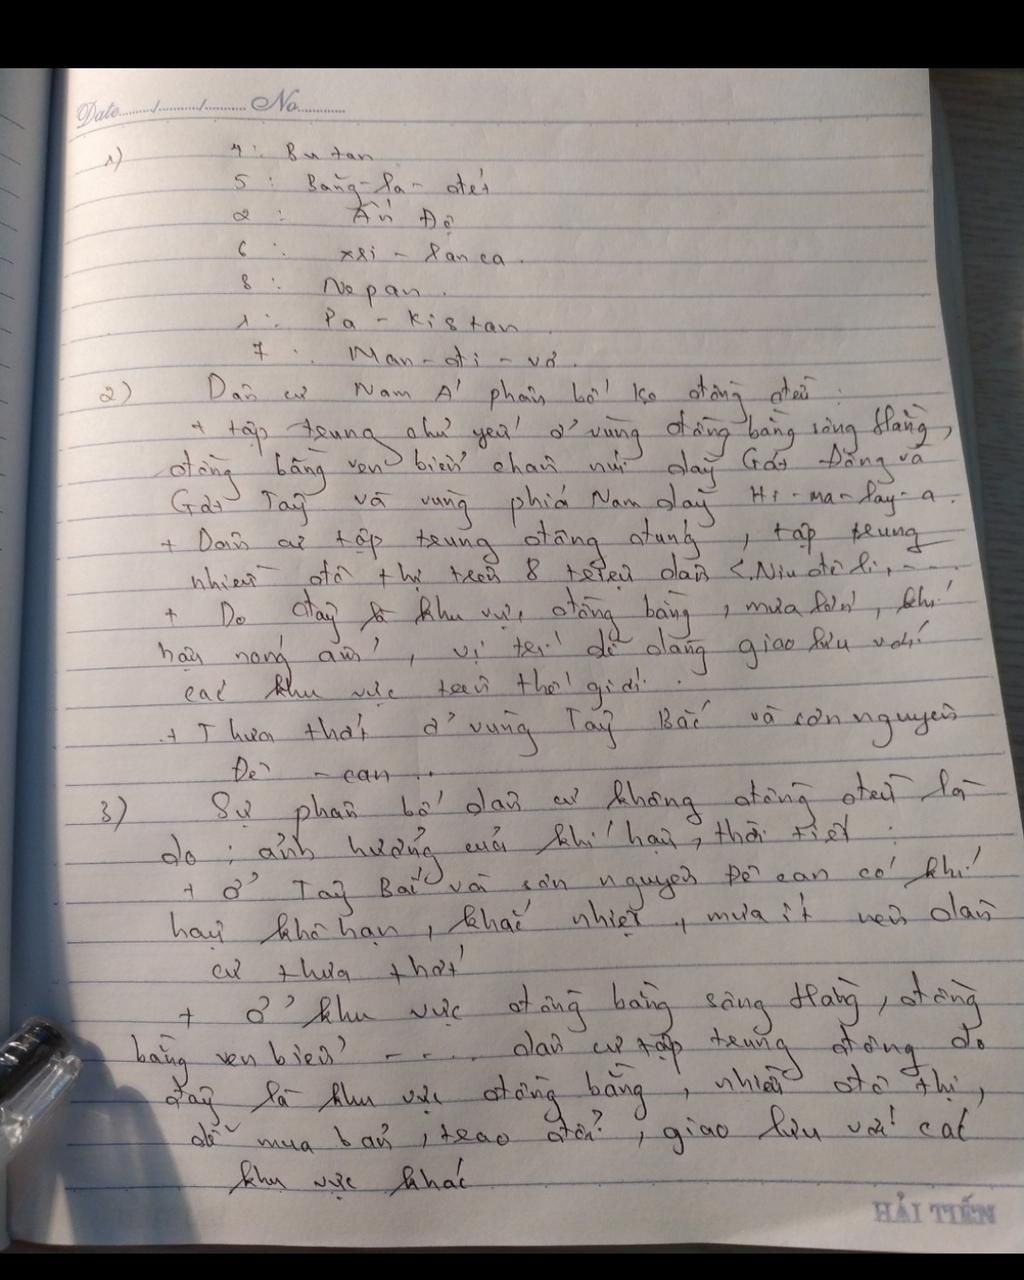 Date......./........./......... No...........
1) 4: Bu tan
5: Băng-la-đét
2: Ấn Độ
6: xri-lan ca.
8: Nepan.
1: Pa-kistan
7: Man-đi-vơ.
2) Dân cư Nam Á phân bố ko đồng đều:
+ tập trung chủ yếu ở vùng đồng bằng sông Hằng,
đồng bằng ven biển chân núi dãy Gát Đông và
Gát Tây và vùng phía Nam dãy Hi-ma-lay-a.
+ Dân cư tập trung đông đúng, tập trung
nhiều đô thị trên 8 triệu dân <.Niu đê li,....
+ Do đây là khu vực đồng bằng, mưa lớn, khí
hậu nóng ẩm, vị trí dễ dàng giao lưu với
các khu vực trên thế giới.
+ Thưa thớt ở vùng Tây Bắc và sơn nguyên
Đê-can..
3) Sự phân bố dân cư không đồng đều là
do: ảnh hưởng của khí hậu, thời tiết:
+ ở Tây Bắc và sơn nguyên Đê can có khí
hậu khô hạn, khắc nhiệt, mưa ít nên dân
cư thưa thớt
+ Ở khu vực đồng bằng sông Hằng, đồng
bằng ven biển ----... dân cư tập trung đông do
đây là khu vực đồng bằng, nhiều đô thị,
dễ mua bán, trao đổi, giao lưu với các
khu vực khác
HẢI TIẾN